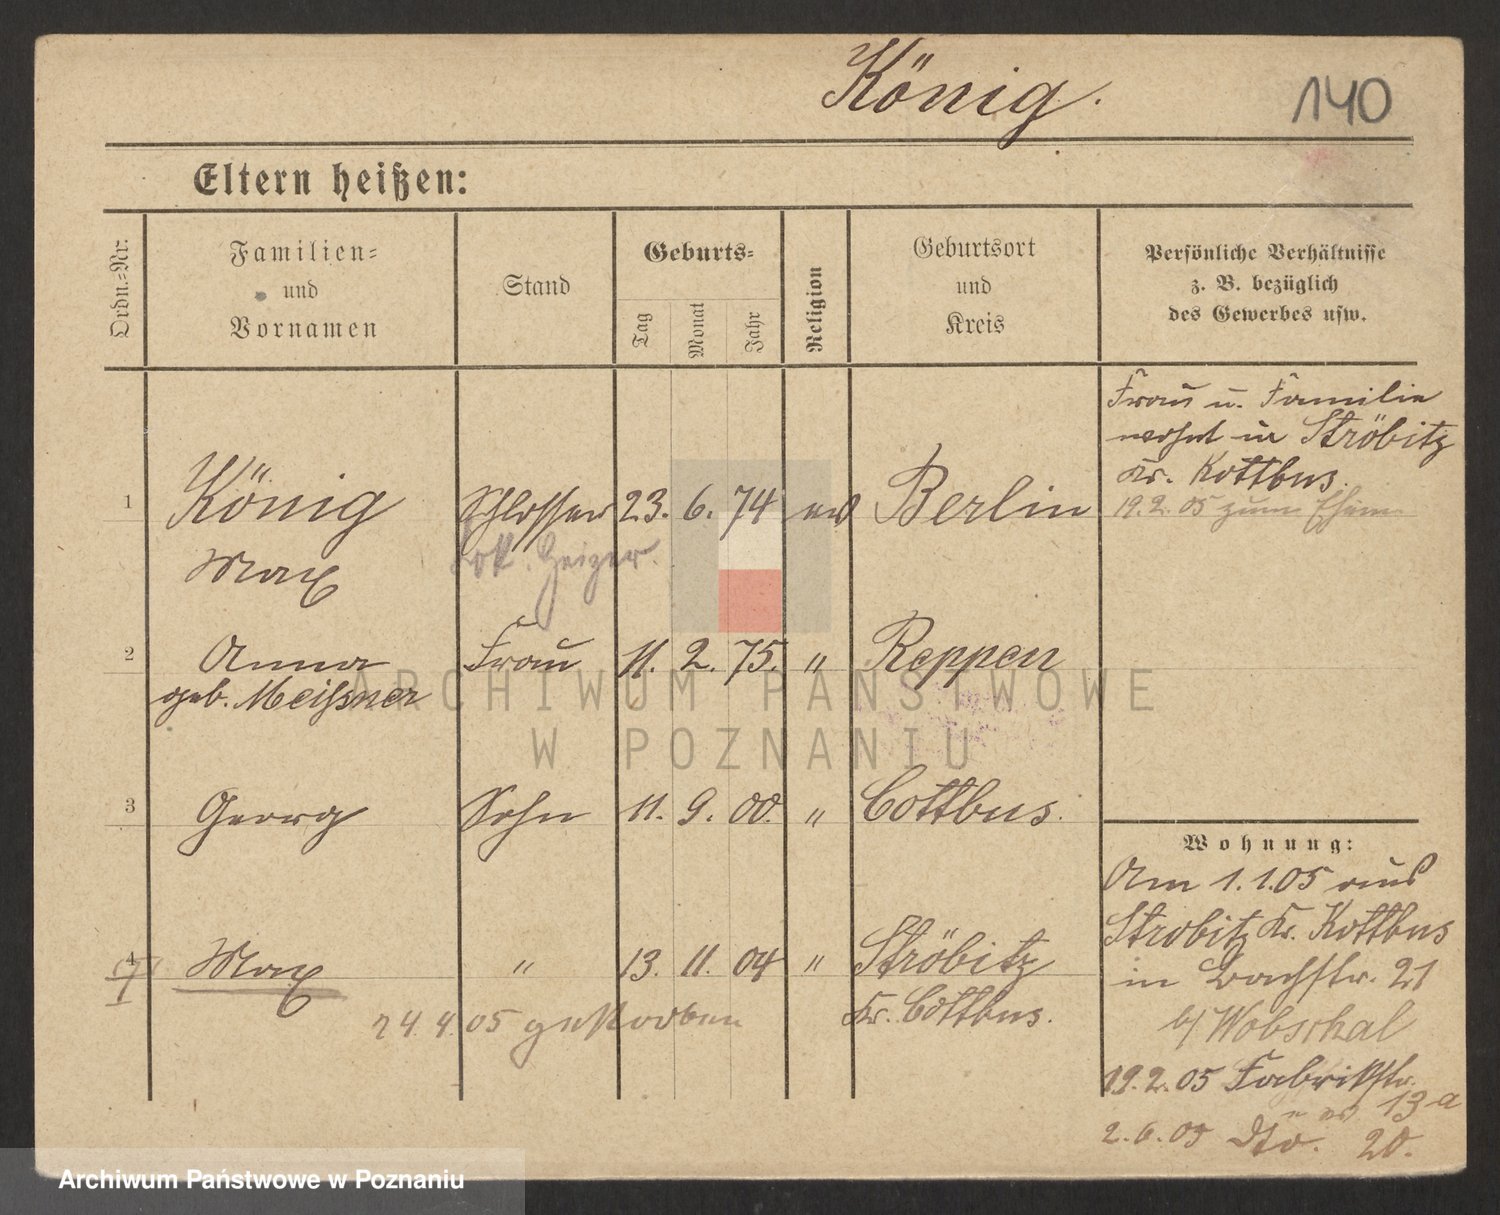 König.
140
Eltern heißen:
Ordn.-Nr.
Familien-
und
Vornamen
Stand
Geburts-
Tag
Monat
Jahr
Religion
Geburtsort
und
Kreis
Persönliche Verhältnisse
z. B. bezüglich
des Gewerbes usw.
Frau u. Familie
wohnt in Ströbitz
Kr. Kottbus.
19.2.05 zum
1 König Schlosser 23. 6. 74 ev Berlin
Max
Lok. Heizer.
2 Anna Frau 11. 2. 75. " Reppen
geb. Meißner
3 Georg Sohn 11. 9. 00. " Cottbus.
4 Max " 13. 11. 04 " Ströbitz
Kr. Cottbus.
24.4.05 gestorben
Wohnung:
Am 1.1.05 aus
Strobitz Kr. Kottbus
in Bachstr. 21
b/ Wobschal
19.2.05 Fabrikstr.
13a
2.6.05 dto. 20.
ARCHIWUM PAŃSTWOWE
W POZNANIU
Archiwum Państwowe w Poznaniu